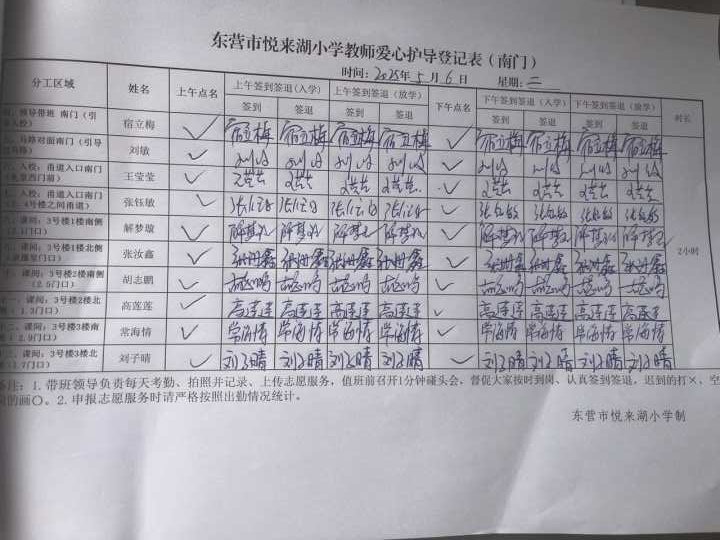 东营市悦来湖小学教师爱心护导登记表（南门）
时间：2025年5月6日 星期：二
分工区域 姓名 上午点名 上午签到签退（入学） 上午签到签退（放学） 下午点名 下午签到签退（入学） 下午签到签退（放学） 时长
签到 签退 签到 签退 签到 签退 签到 签退
领导带班 南门（引导入校） 宿立梅 ✓ 宿立梅 宿立梅 宿立梅 宿立梅 ✓ 宿立梅 宿立梅 宿立梅 宿立梅
马路对面南门（引导 刘敏 ✓ 刘敏 刘敏 刘敏 刘敏 ✓ 刘敏 刘敏 刘敏 刘敏
入校：甬道入口南门 王莹莹 ✓ 王莹莹 王莹莹 王莹莹 王莹莹 ✓ 王莹莹 王莹莹 王莹莹 王莹莹
入校：甬道入口南门 4号楼之间甬道） 张钰敏 ✓ 张钰敏 张钰敏 张钰敏 张钰敏 ✓ 张钰敏 张钰敏 张钰敏 张钰敏
课间：3号楼1楼南侧 解梦璇 ✓ 解梦璇 解梦璇 解梦璇 解梦璇 ✓ 解梦璇 解梦璇 解梦璇 解梦璇
课间：3号楼1楼北侧 张汝鑫 ✓ 张汝鑫 张汝鑫 张汝鑫 张汝鑫 ✓ 张汝鑫 张汝鑫 张汝鑫 张汝鑫 2小时
课间：3号楼2楼南侧（2.5门口） 胡志鹏 ✓ 胡志鹏 胡志鹏 胡志鹏 胡志鹏 ✓ 胡志鹏 胡志鹏 胡志鹏 胡志鹏
课间：3号楼2楼北（1.3门口） 高莲莲 ✓ 高莲莲 高莲莲 高莲莲 高莲莲 ✓ 高莲莲 高莲莲 高莲莲 高莲莲
课间：3号楼3楼南（2.9门口） 常海情 ✓ 常海情 常海情 常海情 常海情 ✓ 常海情 常海情 常海情 常海情
课间：3号楼3楼北（2.7门口） 刘子晴 ✓ 刘子晴 刘子晴 刘子晴 刘子晴 ✓ 刘子晴 刘子晴 刘子晴 刘子晴
注：1.带班领导负责每天考勤、拍照并记录、上传志愿服务，值班前召开1分钟碰头会，督促大家按时到岗、认真签到签退，迟到的打×，空
的画〇。2.申报志愿服务时请严格按照出勤情况统计。
东营市悦来湖小学制